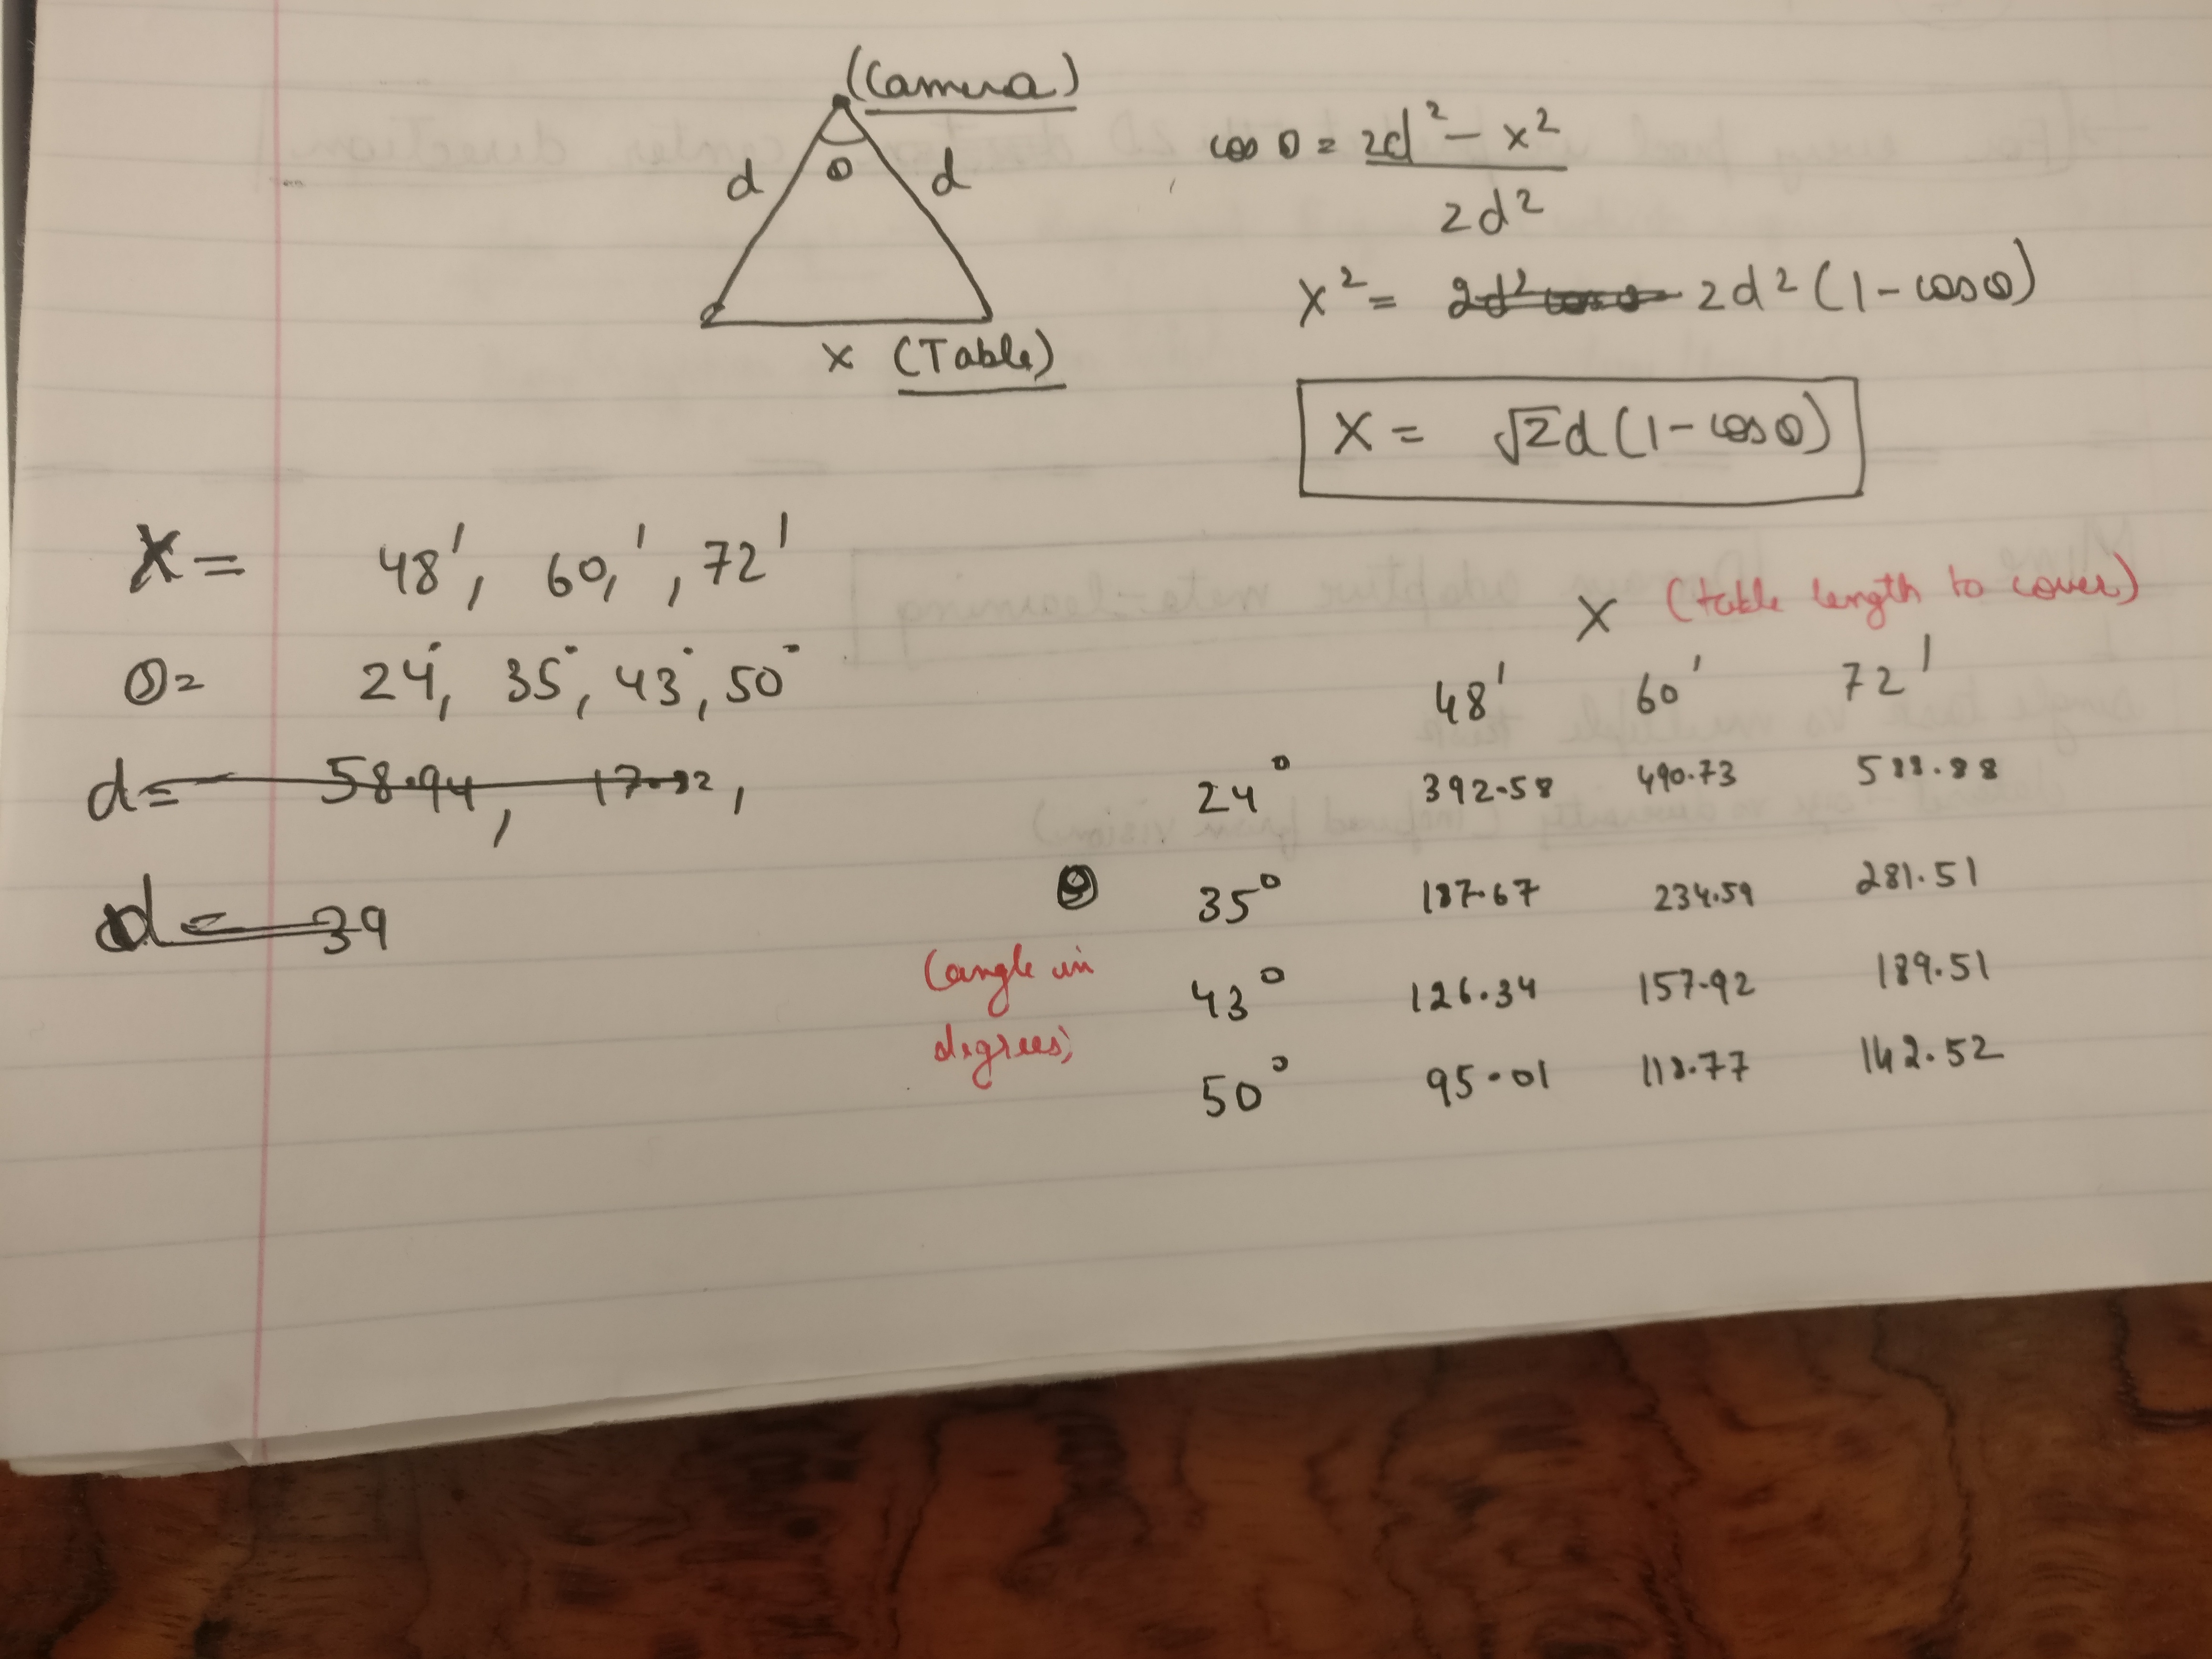 (Camera)
θ
d d
x (Table)
cos θ = 2d² - x²
2d²
x² = 2d² cos θ 2d² (1 - cos θ)
X = √2 d (1 - cos θ)
X = 48', 60,', 72'
θ = 24°, 35°, 43°, 50°
d = 58.94, 17.92,
d = 39
X (table length to cover)
48' 60' 72'
24° 392.58 490.73 588.88
θ 35° 187.67 234.59 281.51
(angle in
degrees)
43° 126.34 157.92 189.51
50° 95.01 118.77 142.52